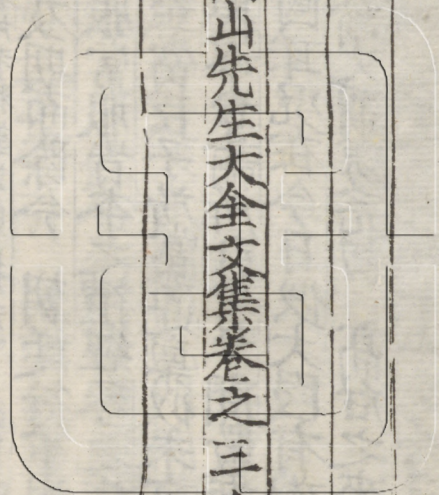 山先生大全文集卷之三